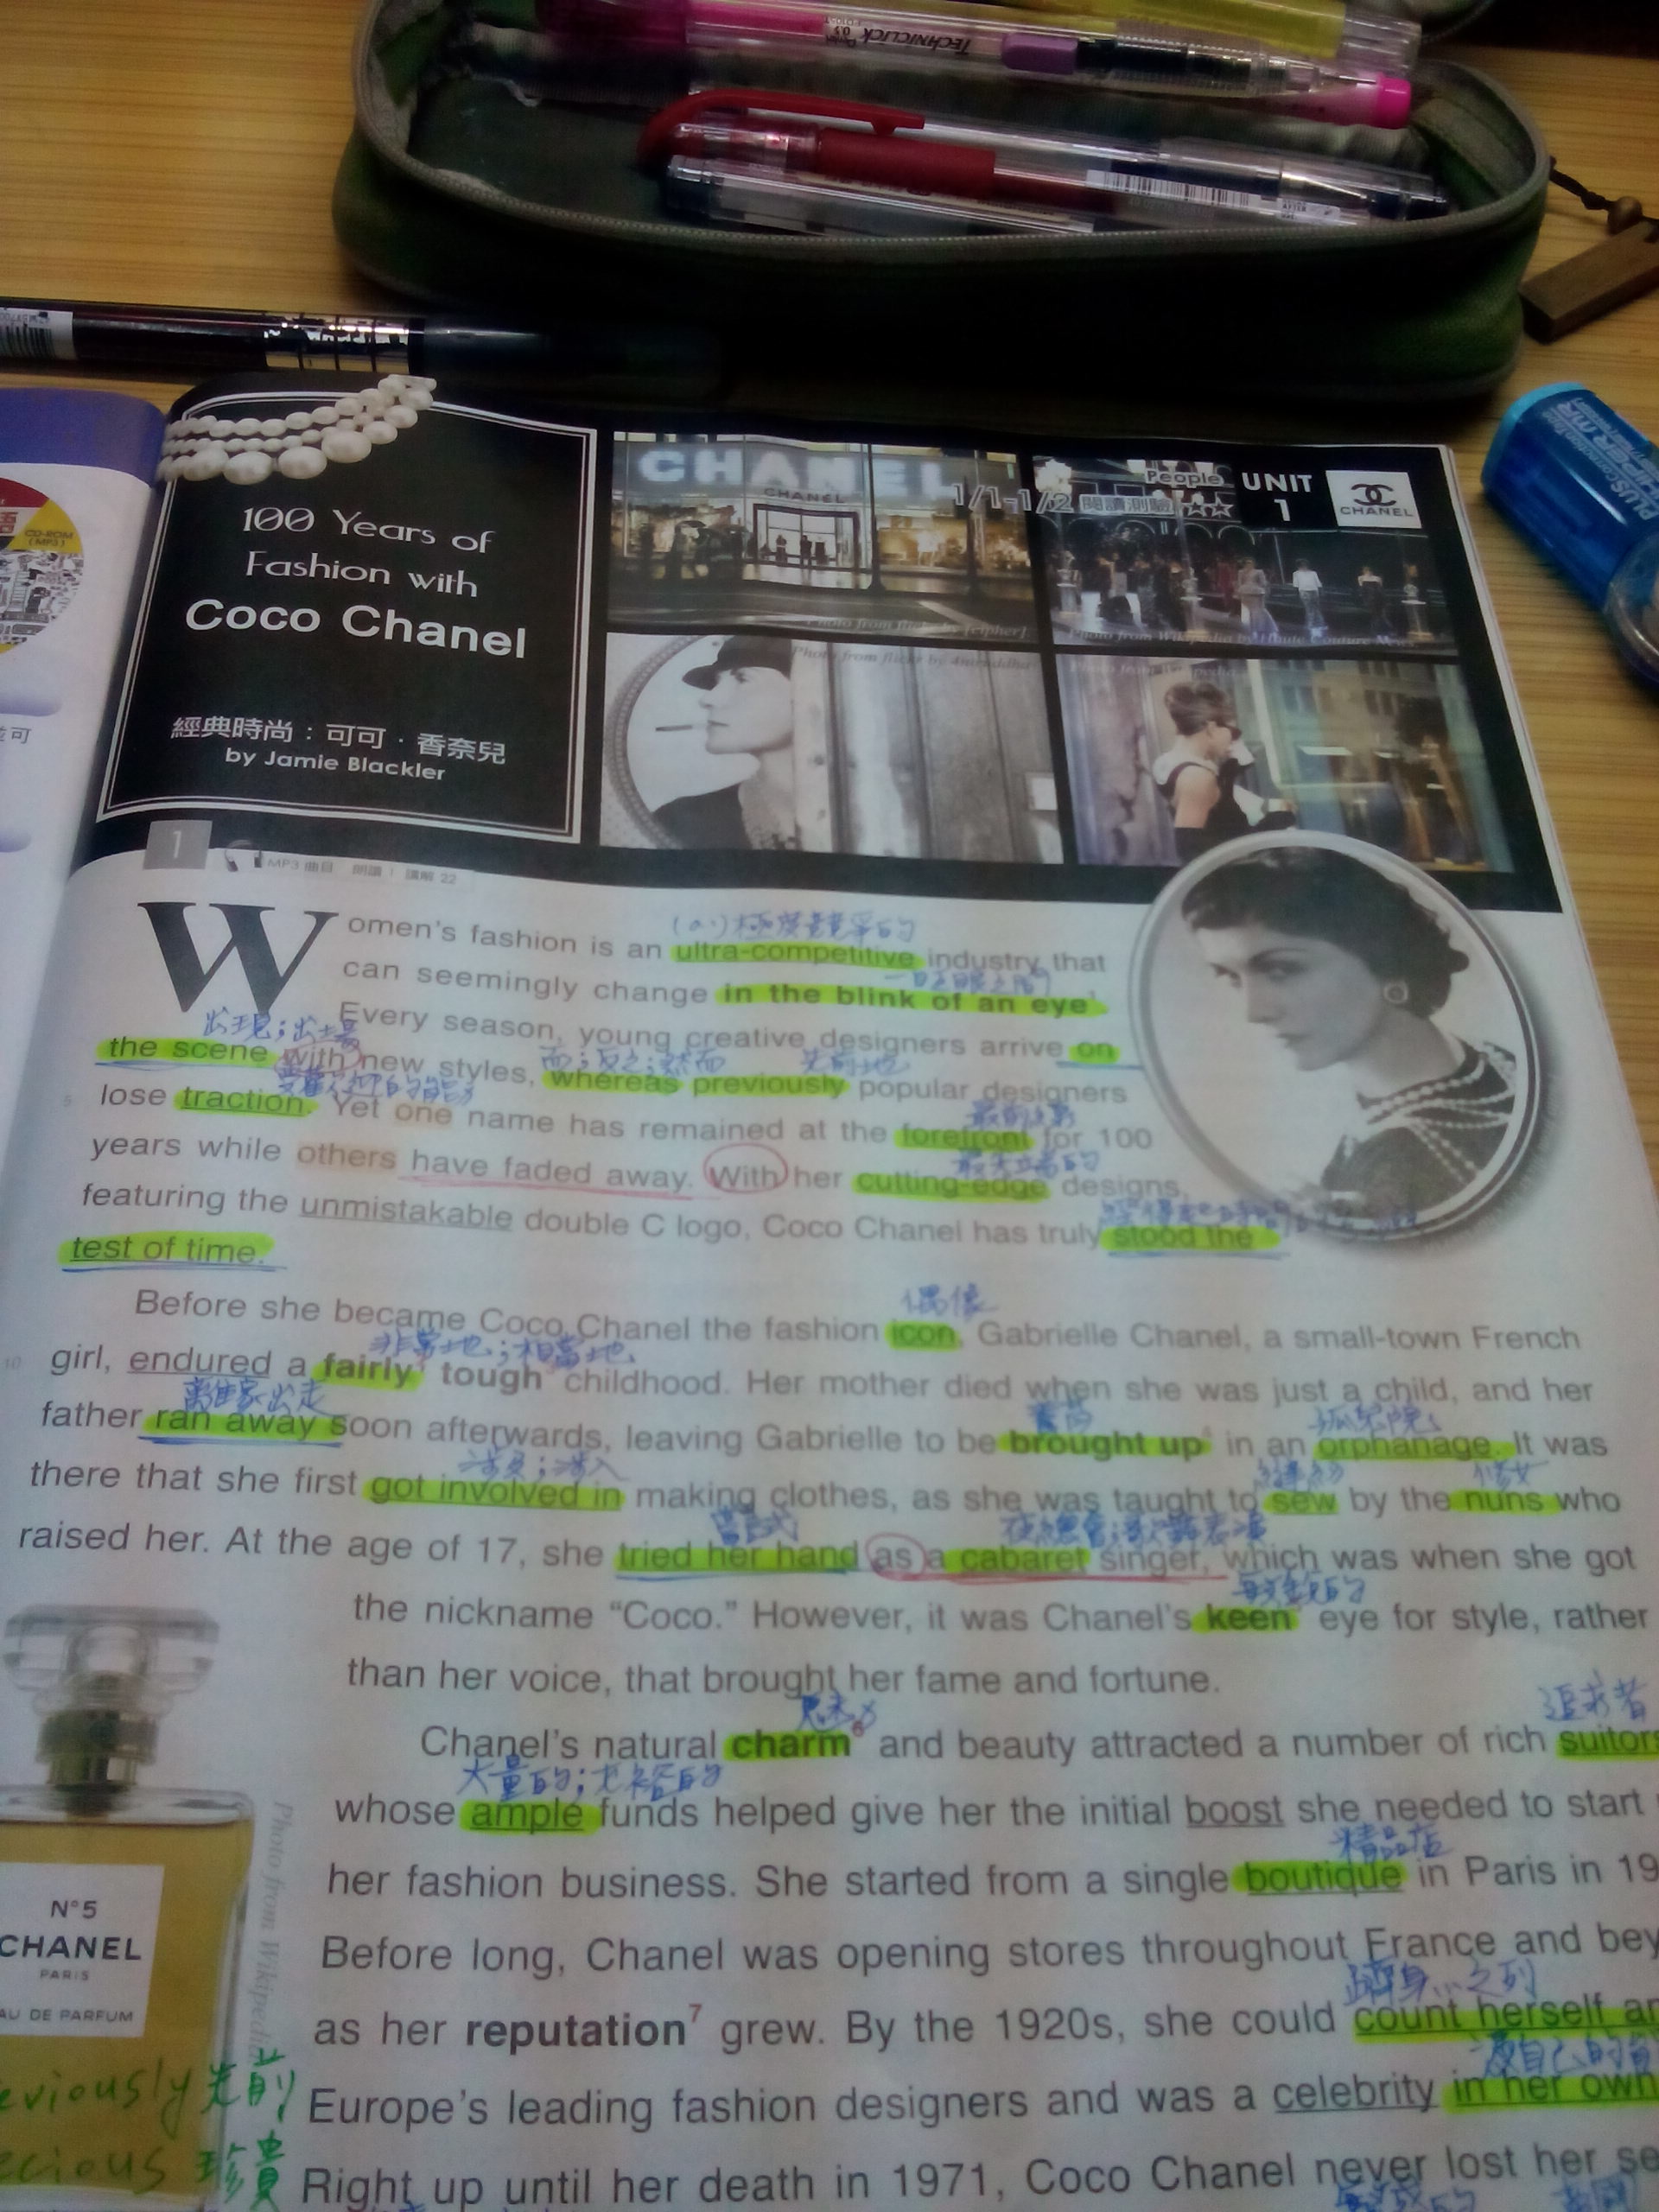 TECHNICLICK
PLUS
CD-ROM
(MP3)
100 Years of
Fashion with
Coco Chanel
經典時尚：可可．香奈兒
by Jamie Blackler
CHANEL
CHANEL
1/1-1/2 閱讀測驗 ☆☆
People
UNIT
1
CHANEL
Photo from flickr by [cipher]
Photo from Wikipedia by Haute Couture
Photo from flickr by
1
MP3 曲目 朗讀 1 講解 22
(a.) 極度競爭的
Women's fashion is an ultra-competitive industry that
一眨眼之間
can seemingly change in the blink of an eye¹.
出現；出場
Every season, young creative designers arrive on
而；反之；然而 先前地
the scene with new styles, whereas previously popular designers
5 lose traction. Yet one name has remained at the forefront for 100
最尖端的
years while others have faded away. With her cutting-edge designs,
featuring the unmistakable double C logo, Coco Chanel has truly stood the
test of time.
偶像
Before she became Coco Chanel the fashion icon, Gabrielle Chanel, a small-town French
非常地；相當地
10 girl, endured a fairly² tough³ childhood. Her mother died when she was just a child, and her
離家出走 養育 孤兒院
father ran away soon afterwards, leaving Gabrielle to be brought up⁴ in an orphanage. It was
涉及；涉入 縫紉 修女
there that she first got involved in making clothes, as she was taught to sew by the nuns who
嘗試
raised her. At the age of 17, she tried her hand as a cabaret singer, which was when she got
敏銳的
the nickname “Coco.” However, it was Chanel's keen eye for style, rather
than her voice, that brought her fame and fortune.
魅力 追求者
Chanel's natural charm⁶ and beauty attracted a number of rich suitors
大量的；充裕的
whose ample funds helped give her the initial boost she needed to start
精品店
her fashion business. She started from a single boutique in Paris in 19
Before long, Chanel was opening stores throughout France and bey
躋身…之列
as her reputation⁷ grew. By the 1920s, she could count herself a
憑自己的
Europe's leading fashion designers and was a celebrity in her own
Right up until her death in 1971, Coco Chanel never lost her se
N°5
CHANEL
PARIS
EAU DE PARFUM
Photo from Wikipedia
eviously 先前
ecious 珍貴